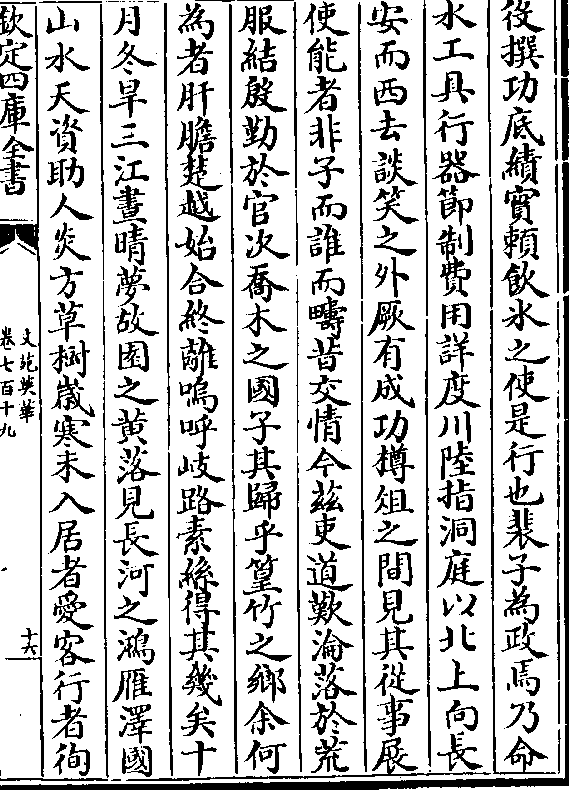 役撰功底績實賴飲氷之使是行也裴子為政焉乃命
水工具行器節制費用詳度川陸指洞庭以北上向長
安而西去談笑之外厥有成功樽俎之間見其從事展
使能者非子而誰而疇昔交情今茲吏道歎淪落於荒
服結殷勤於官次喬木之國子其歸乎篁竹之鄉余何
為者肝膽楚越始合終離嗚呼岐路素絲得其幾矣十
月冬旱三江晝晴夢故園之黄落見長河之鴻雁澤國
山水天資助人炎方草樹歲寒未入居者愛客行者徇
欽定四庫全書
文苑英華
卷七百十九
十六